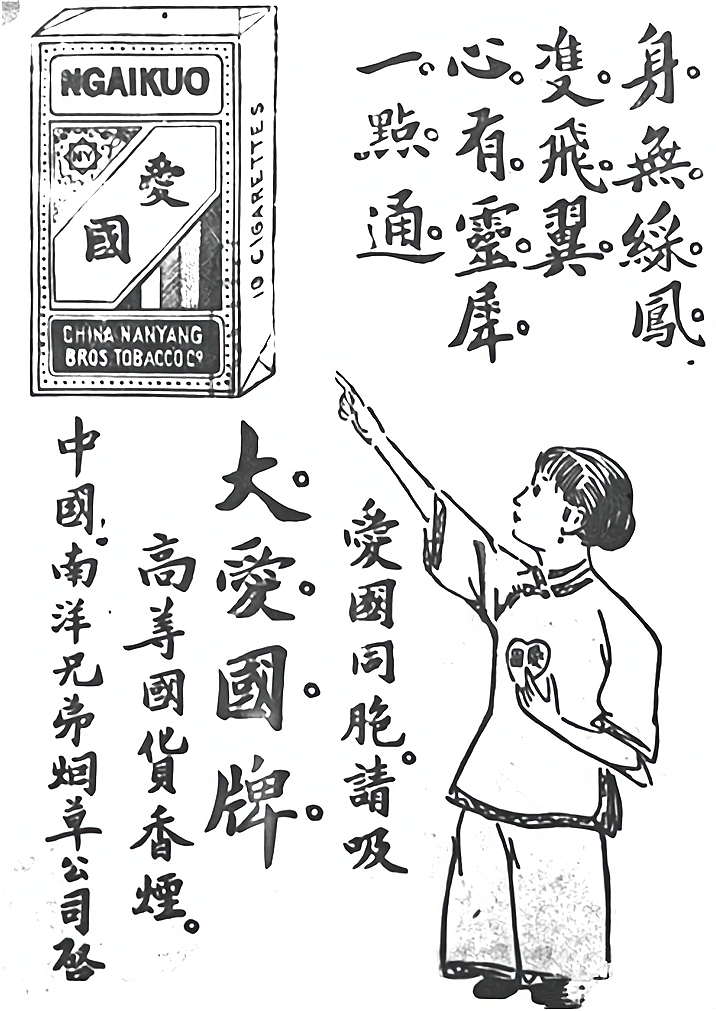 身。無。綵。鳳。
雙。飛。翼。
心。有。靈。犀。
一。點。通。
NGAIKUO
NY
愛
國
CHINA NANYANG
BROS. TOBACCO Cº
10 CIGARETTES
愛國同胞。請吸
大。愛。國。牌。
高等國貨香煙。
中國南洋兄弟烟草公司啓
愛國